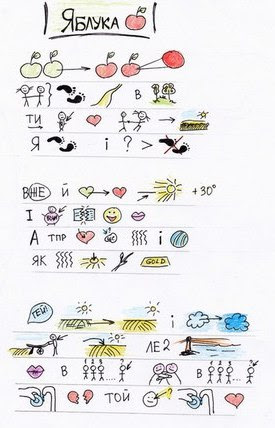 ЯБЛУКА
В
ТИ
Я і ? >
ВЖЕ Й +30°
І
А ТПР і
ЯК GOLD
ГЕЙ! і
ЛЕ2
В В
ТОЙ ?